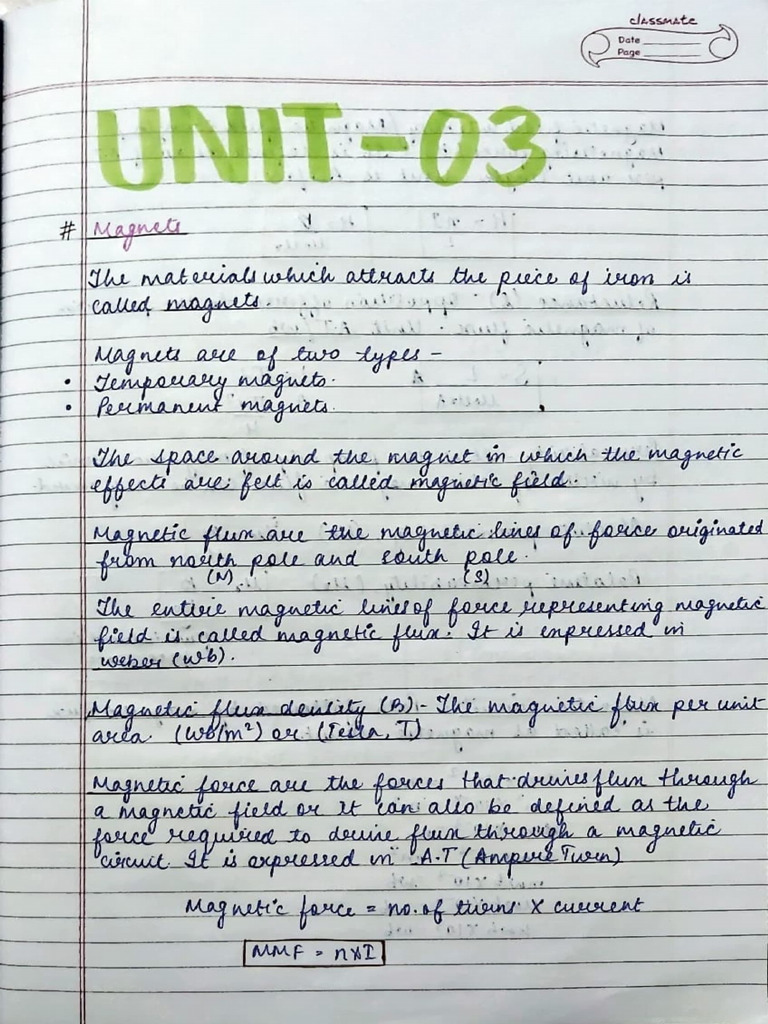 classmate
Date
Page
UNIT-03
# Magnets
The materials which attracts the piece of iron is
called magnets.
Magnets are of two types -
• Temporary magnets.
• Permanent magnets.
The space around the magnet in which the magnetic
effects are felt is called magnetic field.
Magnetic flux are the magnetic lines of force originated
from north pole and south pole.
(N) (S)
The entire magnetic lines of force representing magnetic
field is called magnetic flux. It is expressed in
weber (wb).
Magnetic flux density (B) - The magnetic flux per unit
area. (Wb/m²) or (Tesla, T)
Magnetic force are the forces that drives flux through
a magnetic field or it can also be defined as the
force required to derive flux through a magnetic
circuit. It is expressed in A.T (Ampere Turn)
Magnetic force = no. of turns X current
MMF = nXI